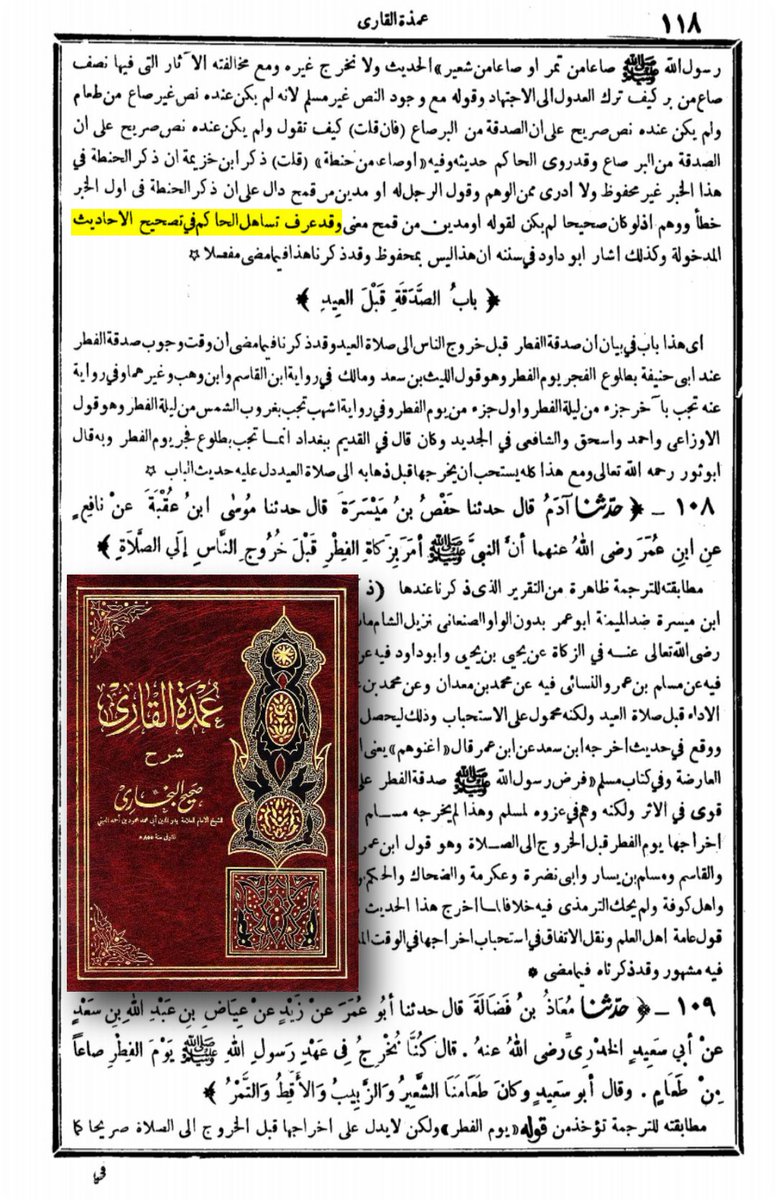 ١١٨
عمدة القارى
رسول الله ﷺ صاعا من تمر او صاعا من شعير» الحديث ولا نخرج غيره ومع مخالفته الآثار التى فيها نصف
صاع من بر كيف ترك العدول الى الاجتهاد وقوله مع وجود النص غير مسلم لانه لم يكن عنده نص غير صاع من طعام
ولم يكن عنده نص صريح على ان الصدقة من البر صاع (فان قلت) كيف تقول ولم يكن عنده نص صريح على ان
الصدقة من البر صاع وقد روى الحاكم حديثه وفيه «او صاع من حنطة» (قلت) ذكر ابن خزيمة ان ذكر الحنطة في
هذا الخبر غير محفوظ ولا ادرى ممن الوهم وقول الرجل له او مدين من قمح دال على ان ذكر الحنطة فى اول الخبر
خطأ ووهم اذ لو كان صحيحا لم يكن لقوله او مدين من قمح معنى وقد عرف تساهل الحاكم في تصحيح الاحاديث
المدخولة وكذلك اشار ابو داود في سننه ان هذا ليس بمحفوظ وقد ذكرنا هذا فيما مضى مفصلا ☆
﴿ بابُ الصَّدَقَةِ قَبْلَ العِيدِ ﴾
اى هذا باب في بيان ان صدقة الفطر قبل خروج الناس الى صلاة العيد وقد ذكرنا فيما مضى ان وقت وجوب صدقة الفطر
عند ابى حنيفة بطلوع الفجر يوم الفطر وهو قول الليث بن سعد ومالك في رواية ابن القاسم وابن وهب وغيرهما وفي رواية
عنه تجب بآخر جزء من ليلة الفطر واول جزء من يوم الفطر وفي رواية اشهب تجب بغروب الشمس من ليلة الفطر وهو قول
الاوزاعى واحمد واسحق والشافعى في الجديد وكان قال في القديم ببغداد انما تجب بطلوع فجر يوم الفطر وبه قال
ابو ثور رحمه الله تعالى ومع هذا كله يستحب ان يخرجها قبل ذهابه الى صلاة العيد دل عليه حديث الباب ☆
١٠٨ ـ ﴿ حدّثنا آدَمُ قال حدثنا حَفْصُ بنُ مَيْسَرَةَ قال حدثنا مُوسَى ابنُ عُقْبَةَ عنْ نافِعٍ
عنِ ابنِ عُمَرَ رضى اللهُ عنهما أنَّ النبىَّ ﷺ أمَرَ بِزَكاةِ الفِطْرِ قَبْلَ خُرُوجِ النَّاسِ إلَي الصَّلاَةِ ﴾
مطابقته للترجمة ظاهرة من التقرير الذى ذكرنا عندها (ذ
ابن ميسرة ضد الميمنة ابو عمر بدون الواو الصنعانى نزيل الشام ما
رضى الله تعالى عنه في الزكاة عن يحيى بن يحيى وابو داود فيه عن
فيه عن مسلم بن عمر والنسائى فيه عن محمد بن معدان وعن محمد بن
الاداء قبل صلاة العيد ولكنه محمول على الاستحباب وذلك ليحصل
ووقع في حديث اخرجه ابن سعد عن ابن عمر قال «اغنوهم» يعنى ا
العارضة وفى كتاب مسلم «فرض رسول الله ﷺ صدقة الفطر على
قوى في الاثر ولكنه وهم في عزوه لمسلم وهذا لم يخرجه مسلم
اخراجها يوم الفطر قبل الخروج الى الصلاة وهو قول ابن عمر
والقاسم ومسلم بن يسار وابى نضرة وعكرمة والضحاك والحكم و
واهل كوفة ولم يحك الترمذى فيه خلافا لما اخرج هذا الحديث
قول عامة اهل العلم ونقل الاتفاق في استحباب اخراجها في الوقت المذ
فيه مشهور وقد ذكرناه فيما مضى *
عُمْدَةُ القَارِئ
شرح
صحيح البخاري
للشيخ الإمام العلامة بدر الدين أبي محمد محمود بن أحمد العيني
المتوفى سنة ٨٥٥ هـ
١٠٩ ـ ﴿ حدّثنا مُعَاذُ بنُ فَضَالَةَ قال حدثنا أبُو عُمَرَ عنْ زَيْدٍ عنْ عِيَاضِ بنِ عَبْدِ اللهِ بنِ سَعْدٍ
عنْ أبي سَعِيدٍ الخُدْرِىِّ رضى اللهُ عنهُ . قال كُنَّا نُخْرِجُ فِى عَهْدِ رسولِ اللهِ ﷺ يَوْمَ الفِطْرِ صاعاً
مِنْ طَعَامٍ . وقال أبو سَعِيدٍ وكانَ طَعَامَنَا الشَّعِيرُ وَالزَّبِيبُ وَالأَقِطُ وَالتَّمْرُ ﴾
مطابقته للترجمة تؤخذ من قوله «يوم الفطر» ولكن لا يدل على اخراجها قبل الخروج الى الصلاة صريحا كما
في